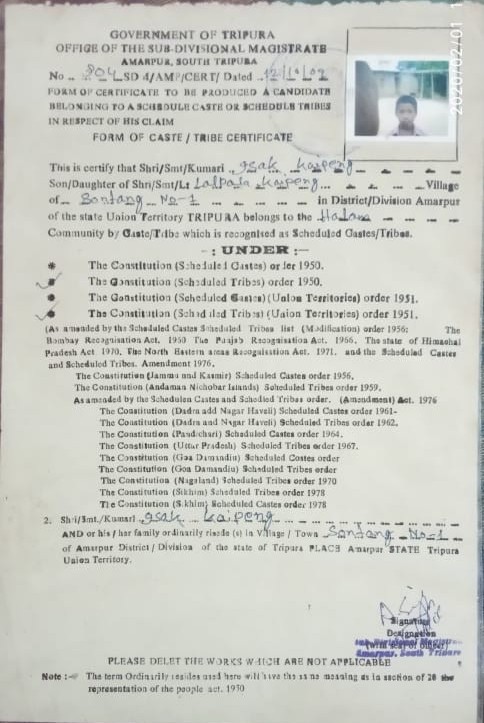 GOVERNMENT OF TRIPURA
OFFICE OF THE SUB-DIVISIONAL MAGISTRATE
AMARPUR, SOUTH TRIPURA
No .. 804 SD 4/AMP/CERT/ Dated
FORM OF CERTIFICATE TO BE PRODUCED A CANDIDATE
BELONGING TO A SCHEDULE CASTE OR SCHEDULE TRIBES
IN RESPECT OF HIS CLAIM
FORM OF CASTE / TRIBE CERTIFICATE
2020/02/01 1
This is certify that Shri/Smt/Kumari Isak Kaipeng
Son/Daughter of Shri/Smt/Lt Lalpaia Kaipeng Village
of Sontang No-1 in District/Division Amarpur
of the state Union Territory TRIPURA belongs to the Halam
Community by Caste/Tribe which is recognised as Scheduled Castes/Tribes.
-: UNDER :-
* The Constitution (Scheduled Castes) order 1950.
The Constitution (Scheduled Tribes) order 1950.
The Constitution (Scheduled Castes) (Union Territories) order 1951.
The Constitution (Scheduled Tribes) (Union Territories) order 1951.
(As amended by the Scheduled Castes Scheduled Tribes list (Modification) order 1956; The
Bombay Recognisation Act. 1960 The Punjab Recognisation Act. 1966. The state of Himachal
Pradesh Act 1970. The North Eastern areas Recognisation Act. 1971. and the Scheduled Castes
and Scheduled Tribes. Amendment 1976.
The Constitution (Jammu and Kasmir) Scheduled Castes order 1956,
The Constitution (Andaman Nichobar Islands) Scheduled Tribes order 1959.
As amended by the Schedulen Castes and Scheduled Tribes order. (Amendment) Act. 1976
The Constitution (Dadra add Nagar Haveli) Scheduled Castes order 1961-
The Constitution (Dadra and Nagar Haveli) Scheduled Tribes order 1962.
The Constitution (Pandichari) Scheduled Castes order 1964.
The Constitution (Uttar Pradesh) Scheduled Tribes order 1967.
The Constitution (Goa Damandiu) Scheduled Castes order
The Constitution (Goa Damandiu) Scheduled Tribes order
The Constitution (Nagaland) Scheduled Tribes order 1970
The Constitution (Sikhim) Scheduled Tribes order 1978
The Constitution (Sikhim) Scheduled Castes order 1978
2. Shri/Smt./Kumari Isak Kaipeng
AND or his / her family ordinarily riside (s) in Village / Town Sontang No-1
of Amarpur District / Division of the state of Tripura PLACE Amarpur STATE Tripura
Union Territory.
Signature
Designation
(With seal of office)
Sub-Divisional Magistrate
Amarpur, South Tripura
PLEASE DELET THE WORKS WHICH ARE NOT APPLICABLE
Note :- The term Ordinarily resides used here will have the same meaning as in section of 20 the
representation of the people act. 1970